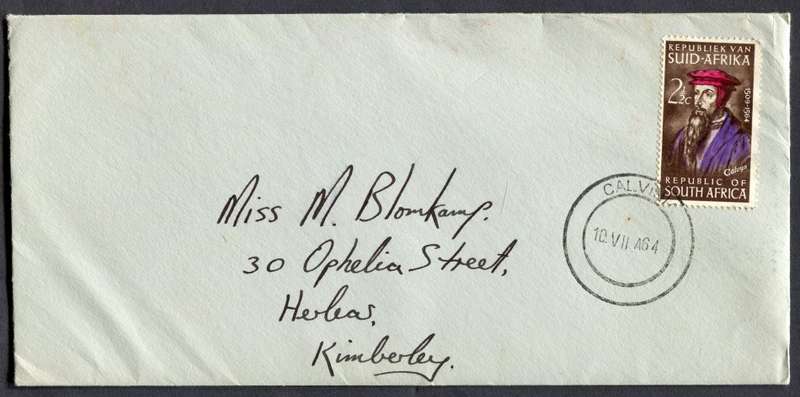 REPUBLIEK VAN
SUID-AFRIKA
2½c
1509-1564
Calvyn
REPUBLIC OF
SOUTH AFRICA
10.VII.A64
Miss M. Blomkamp.
30 Ophelia Street,
Kimberley.